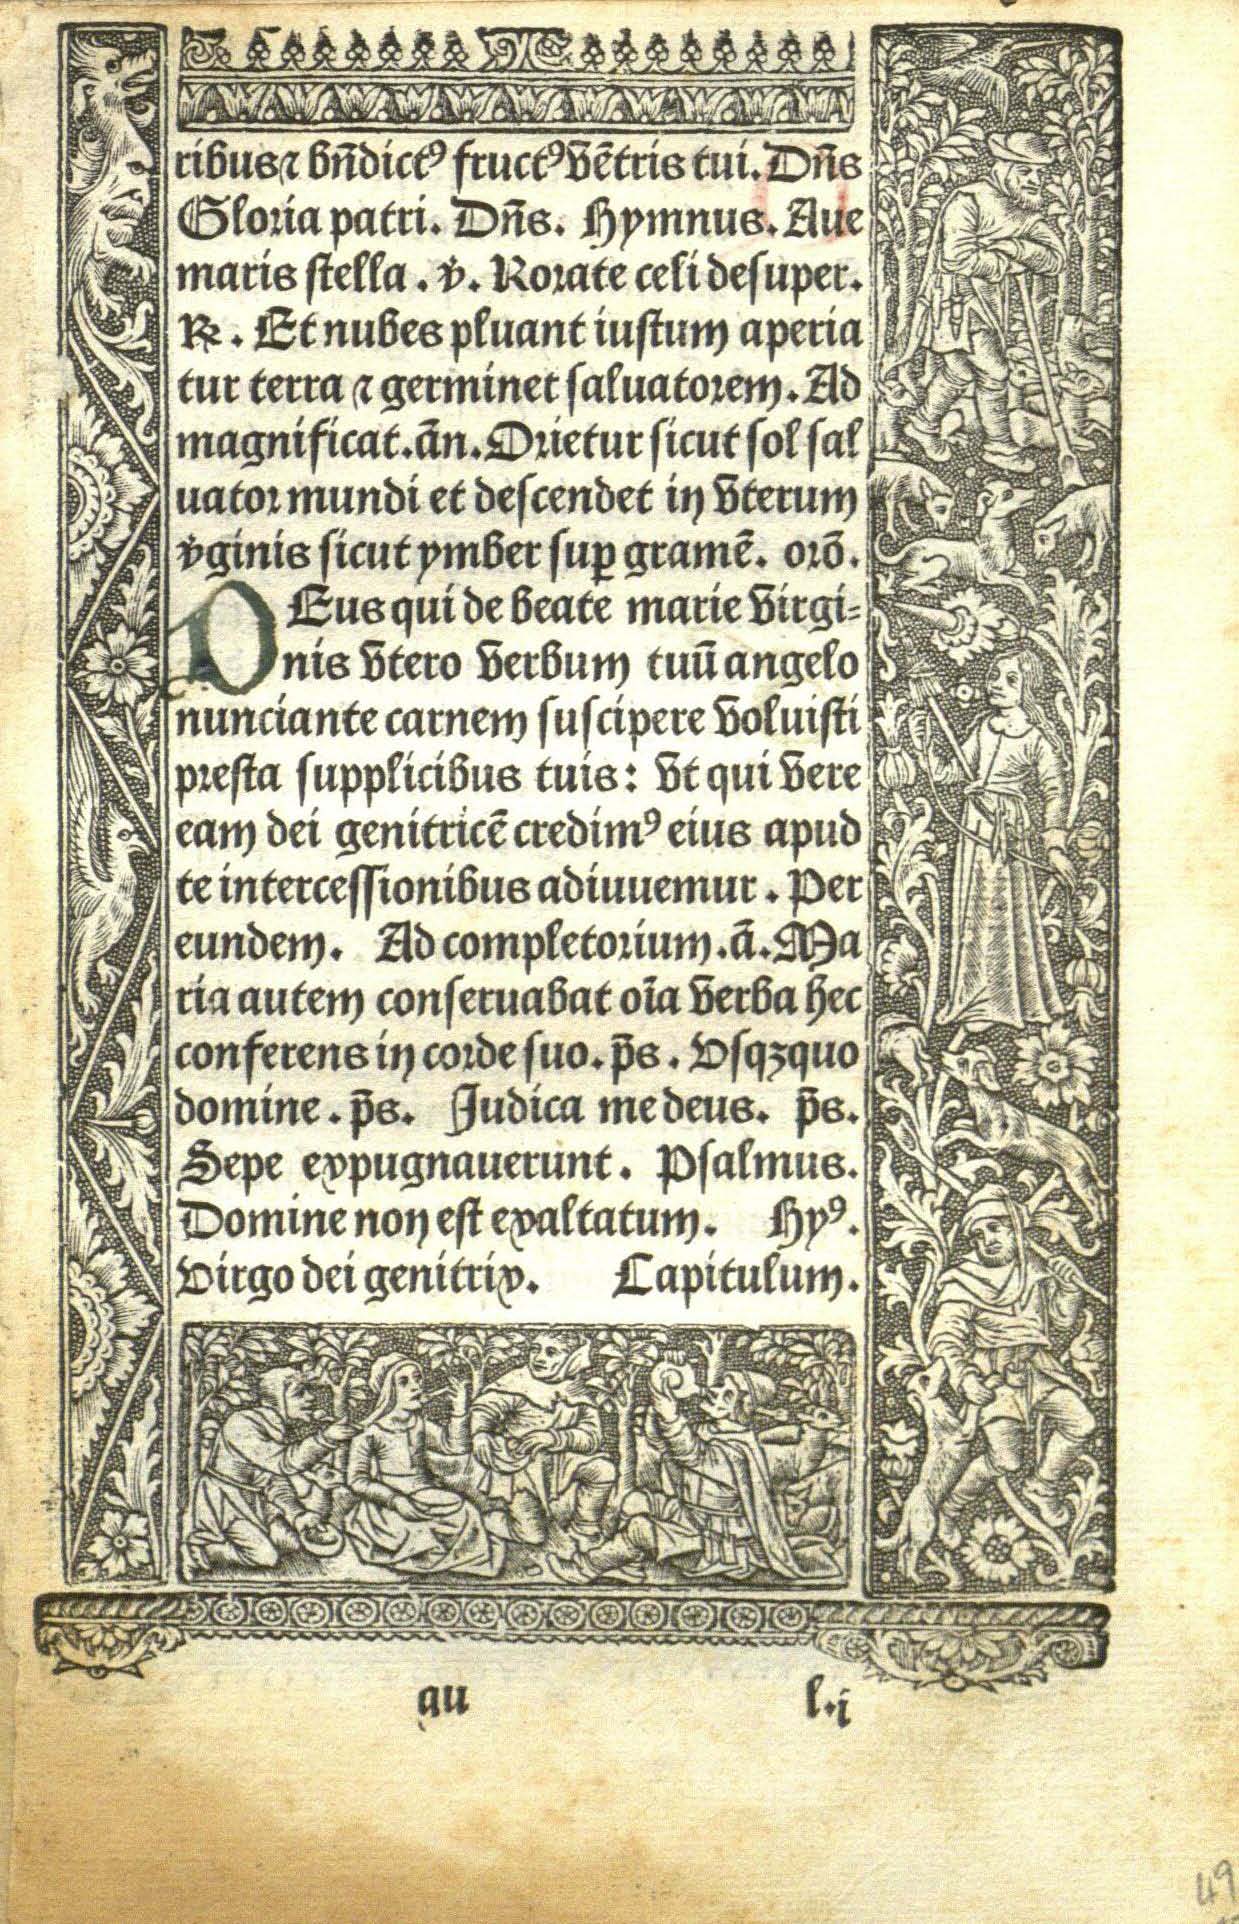 ribus ⁊ bn̄dictꝰ fructꝰ vētris tui. Dn̄s
Gloria patri. Dn̄s. Hymnus. Aue
maris stella. v̇. Rorate celi desuper.
℞. Et nubes pluant iustum aperia
tur terra ⁊ germinet saluatorem. Ad
magnificat. ān. Orietur sicut sol sal
uator mundi et descendet in vterum
v̇ginis sicut ymber suꝑ gramē. orō.
DEus qui de beate marie virgi-
nis vtero verbum tuū angelo
nunciante carnem suscipere voluisti
presta supplicibus tuis: vt qui vere
eam dei genitricē credimꝰ eius apud
te intercessionibus adiuuemur. Per
eundem. Ad completorium. ā. Ma
ria autem conseruabat oīa verba hec
conferens in corde suo. p̄s. Vsqꝫquo
domine. p̄s. Judica me deus. p̄s.
Sepe expugnauerunt. Psalmus.
Domine non est exaltatum. Hyꝰ.
Virgo dei genitrix. Capitulum.
au l.i
49